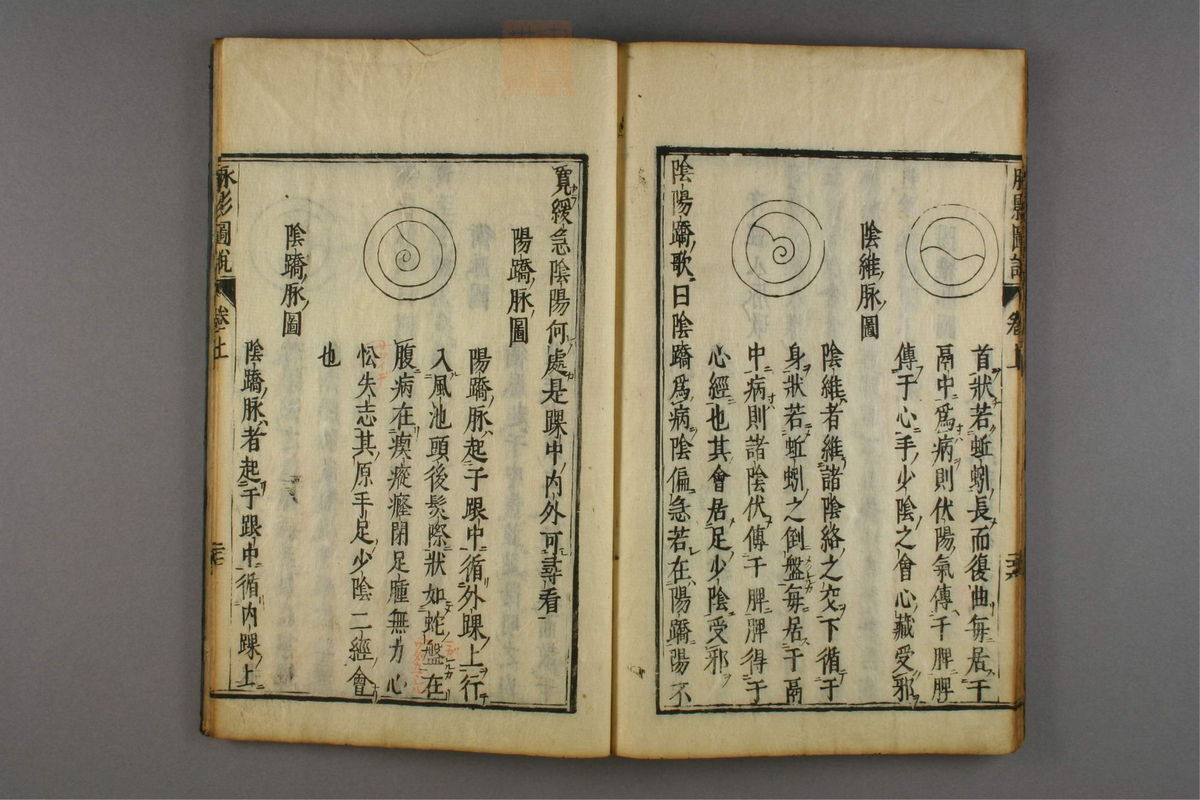 脉影圖說
卷上
首狀若蚯蚓長而復曲每居于
鬲中爲病則伏陽氣傳于脾脾
傳于心手少陰之會心藏受邪
陰維脉圖
陰維者維諸陰絡之交下循于
身狀若蚯蚓之倒盤每居于鬲
中病則諸陰伏傳于脾脾得于
心經也其會居足少陰受邪
陰陽蹻歌曰陰蹻爲病陰偏急若在陽蹻陽不
寬緩急陰陽何處是踝中内外可尋看
陽蹻脉圖
陽蹻脉起于跟中循外踝上行
入風池頭後髮際狀如蛇盤在
腹病在瘈瘲癃閉足腫無力心
忪失志其原手足少陰二經會
也
陰蹻脉圖
陰蹻脉者起于跟中循内踝上
脉影圖說
卷上